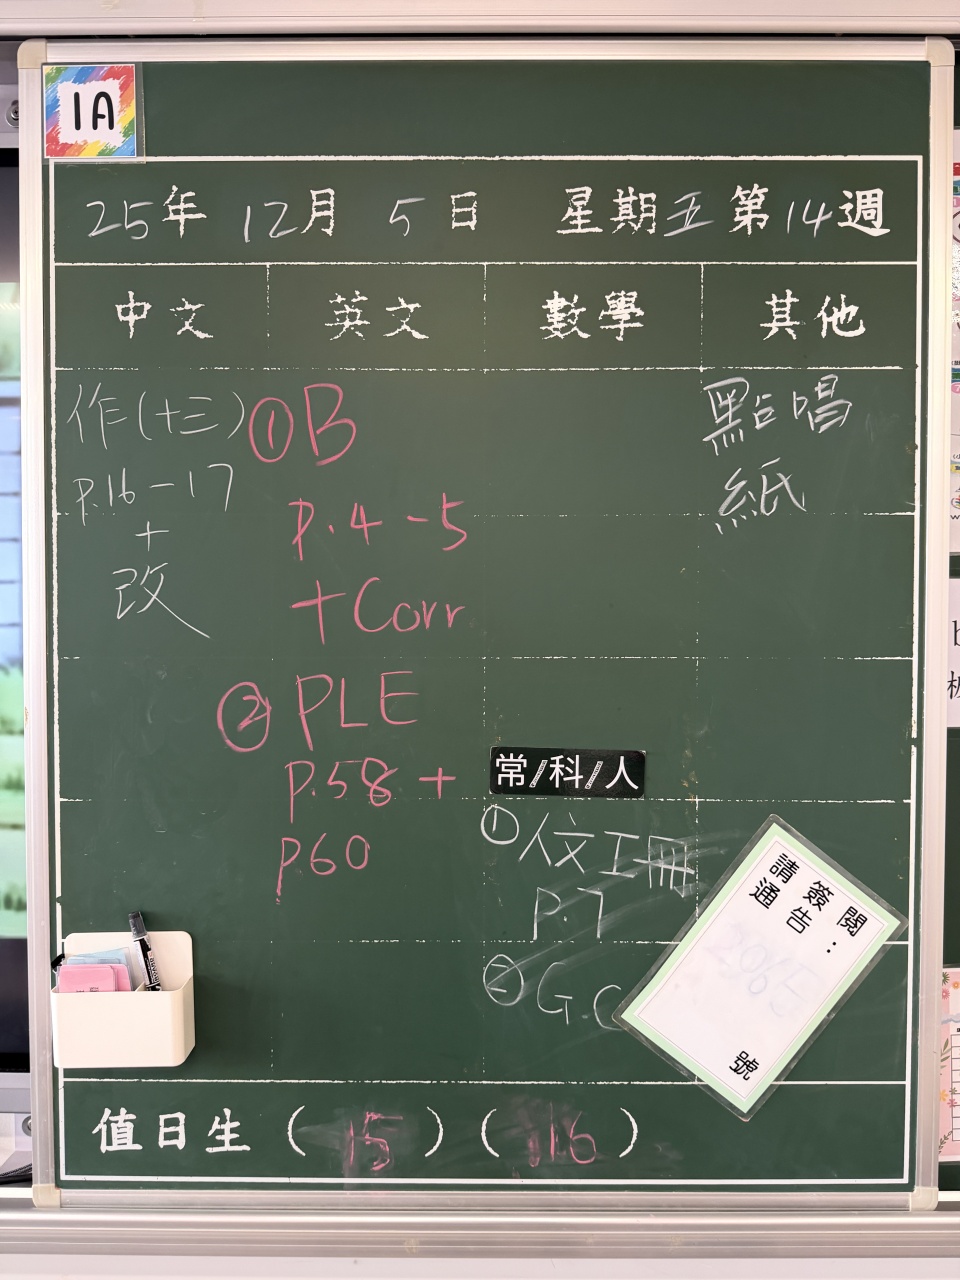 1A
25年 12月 5日 星期五第14週
中文 英文 數學 其他
作(十三)
p.16-17
+
改
①B
p.4-5
+Corr
② PLE
p.58 +
p60
點唱
紙
常/科/人
①人文工冊
P.7
② G.C
請簽閱：
通告
號
值日生 ( 15 ) ( 16 )